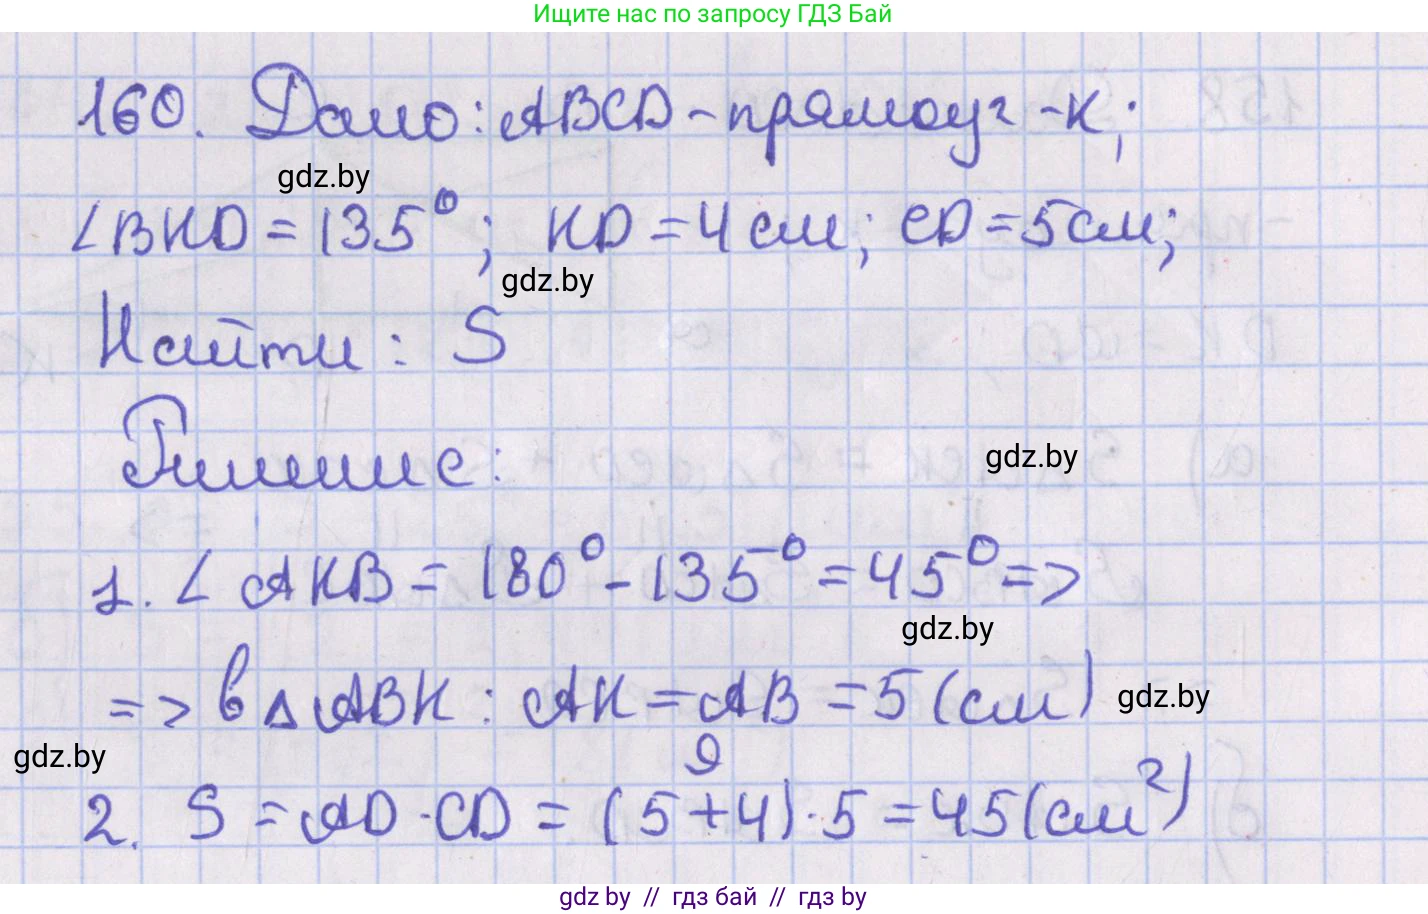 Ищите нас по запросу ГДЗ Бай
160. Дано: ABCD - прямоуг-к;
gdz.by
∠BKD = 135°; KD = 4 см; CD = 5 см;
gdz.by
Найти: S
Решение:
gdz.by
1. ∠AKB = 180° - 135° = 45° =>
gdz.by
=> в △ABK: AK = AB = 5 (см)
gdz.by
gdz.by
9
2. S = AD · CD = (5+4) · 5 = 45 (см²)
gdz.by // гдз бай // гдз by